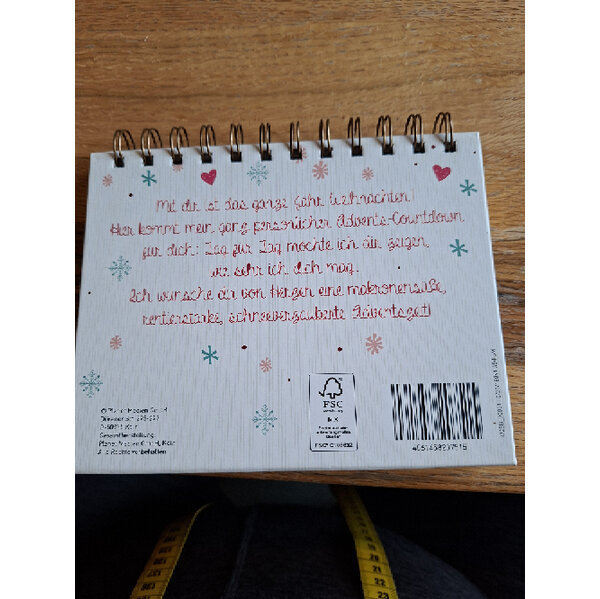 Mit dir ist das ganze Jahr Weihnachten!
Hier kommt mein ganz persönlicher Advents-Countdown
für dich: Tag für Tag möchte ich dir zeigen,
wie sehr ich dich mag.
Ich wünsche dir von Herzen eine makronensüße,
rentierstarke, schneeverzauberte Adventszeit!
FSC
MIX
Gesamtherstellung
Alle Rechte vorbehalten
23
22
21
20